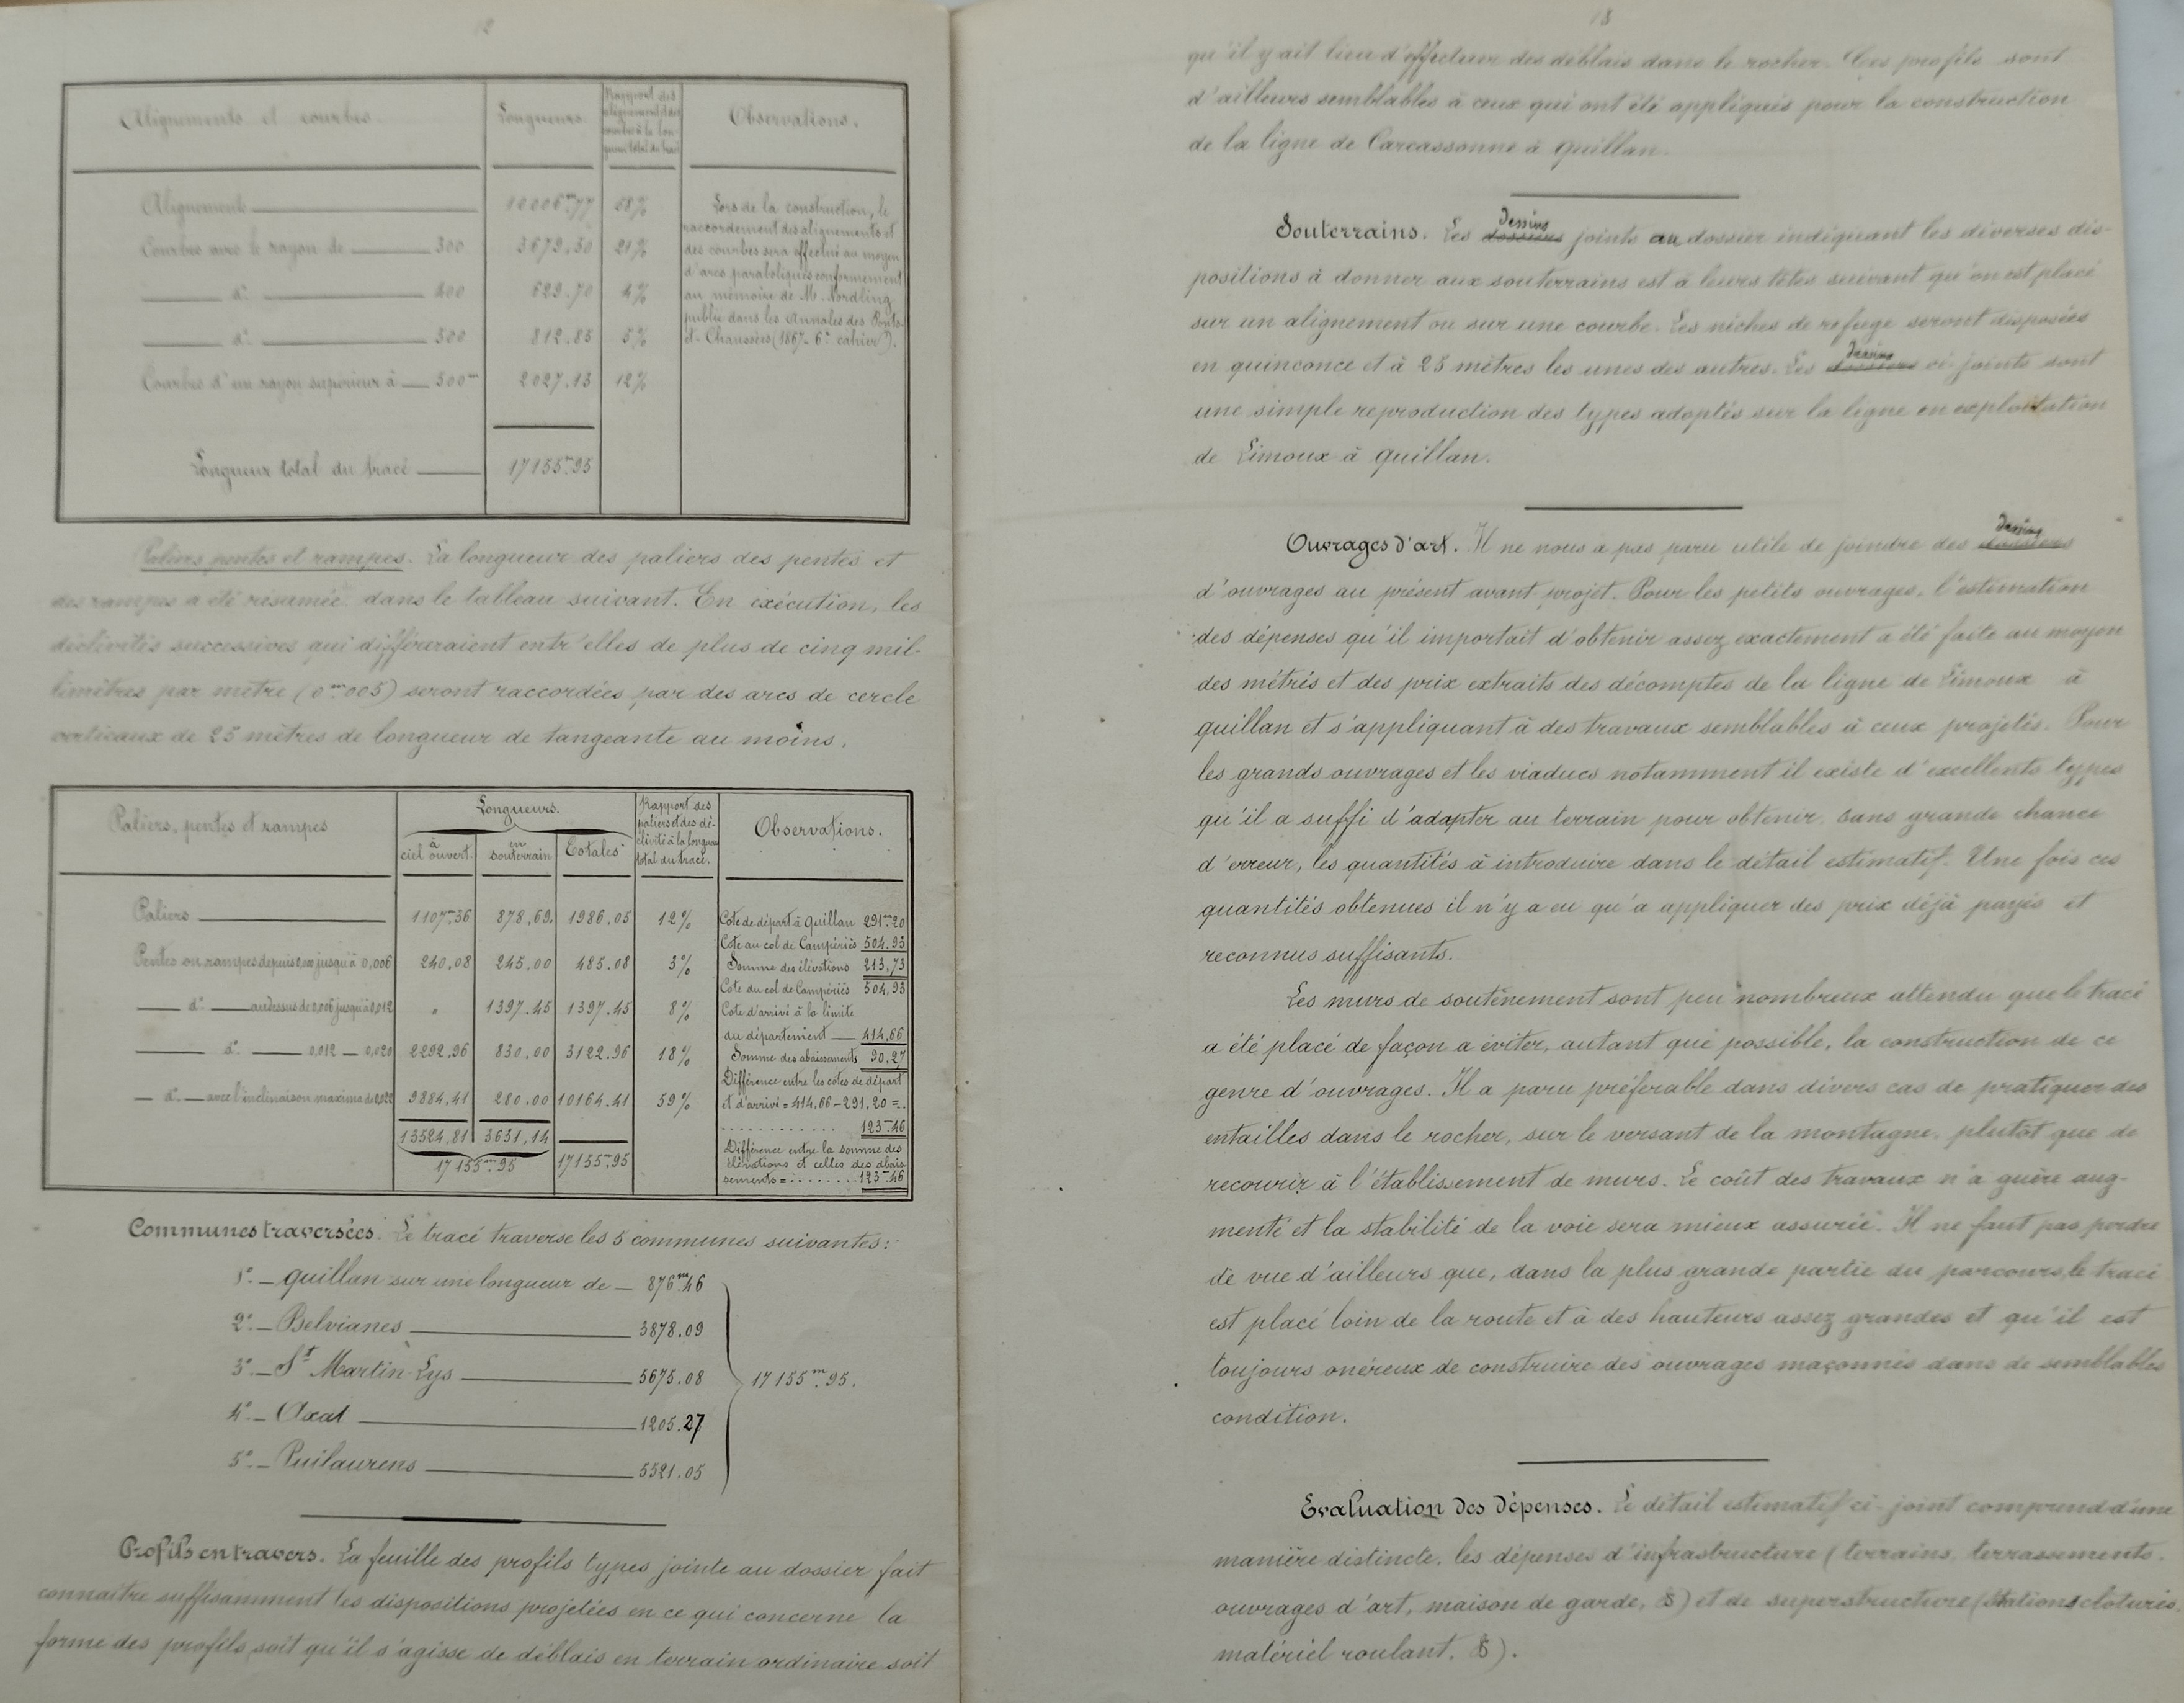 12
Alignements et courbes.
Longueurs.
Rapport des
alignements et des
courbes à la lon-
gueur total du tracé
Observations.
Alignements 10206m,77 58%
Courbes avec le rayon de 300 3679.50 21%
d° 400 629.70 4%
d° 500 812.85 5%
Courbes d'un rayon supérieur à 500m 2027.13 12%
Longueur total du tracé 17155m.95
Lors de la construction, le
raccordement des alignements et
des courbes sera effectué au moyen
d'arcs paraboliques conformément
au mémoire de M. Nordling
publié dans les Annales des Ponts-
et-Chaussées (1867- 6e cahier).
Paliers pentes et rampes. La longueur des paliers des pentes et
des rampes a été résumée dans le tableau suivant. En exécution, les
déclivités successives qui différeraient entr'elles de plus de cinq mil-
limètres par mètre (0m005) seront raccordées par des arcs de cercle
verticaux de 25 mètres de longueur de tangeante au moins,
Paliers, pentes et rampes
Longueurs.
à
ciel ouvert.
en
souterrain
Totales
Rapport des
paliers et des dé-
clivité à la longueur
total du tracé.
Observations.
Paliers 1107m36 878,69. 1986.05 12%
Pentes ou rampes depuis 0,000 jusqu'à 0,006 240,08 245,00 485.08 3%
d° au dessus de 0,006 jusqu'à 0,012 " 1397.45 1397.45 8%
d° 0,012 — 0,020 2292,96 830,00 3122.96 18%
d° avec l'inclinaison maxima de 0,022 9884,41 280.00 10164.41 59%
13524,81 3631,14
17155m.95 17155m.95
Cote de départ à Quillan 291m20
Cote au col de Campériès 504.93
Somme des élévations 213,73
Cote du col de Campériès 504,93
Cote d'arrivé à la limite
du département — 414,66
Somme des abaissements 90,27
Différence entre les cotes de départ
et d'arrivé = 414,66 - 291.20 =.
. . . . . . . . . . . . 123m46
Différence entre la somme des
élévations et celles des abais-
sements = . . . . . . . 123m46
Communes traversées. Le tracé traverse les 5 communes suivantes:
1°. — Quillan sur une longueur de — 876m46
2°. — Belvianes 3878.09
3°. — St Martin-Lys 5675.08
4°. — Axat 1205.27
5°. — Puilaurens 5521.05
17155m.95.
Profils en travers. La feuille des profils types jointe au dossier fait
connaître suffisamment les dispositions projetées en ce qui concerne la
forme des profils soit qu'il s'agisse de déblais en terrain ordinaire soit
13
qu'il y ait lieu d'effectuer des déblais dans le rocher. Ces profils sont
d'ailleurs semblables à ceux qui ont été appliqués pour la construction
de la ligne de Carcassonne à Quillan.
Dessins
Souterrains. Les dossiers joints au dossier indiquant les diverses dis-
positions à donner aux souterrains est à leurs têtes suivant qu'on est placé
sur un alignement ou sur une courbe. Les niches de refuge seront disposées
dessins
en quinconce et à 25 mètres les unes des autres. Les dossiers ci-joints sont
une simple reproduction des types adoptés sur la ligne en exploitation
de Limoux à Quillan.
dessins
Ouvrages d'art. Il ne nous a pas paru utile de joindre des dossiers
d'ouvrages au présent avant-projet. Pour les petits ouvrages, l'estimation
des dépenses qu'il importait d'obtenir assez exactement a été faite au moyen
des métrés et des prix extraits des décomptes de la ligne de Limoux à
Quillan et s'appliquant à des travaux semblables à ceux projetés. Pour
les grands ouvrages et les viaducs notamment il existe d'excellents types
qu'il a suffi d'adapter au terrain pour obtenir sans grande chance
d'erreur, les quantités à introduire dans le détail estimatif. Une fois ces
quantités obtenues il n'y a eu qu'a appliquer des prix déjà payés et
reconnus suffisants.
Les murs de soutènement sont peu nombreux attendu que le tracé
a été placé de façon a éviter, autant que possible, la construction de ce
genre d'ouvrages. Il a paru préférable dans divers cas de pratiquer des
entailles dans le rocher, sur le versant de la montagne, plutôt que de
recourir à l'établissement de murs. Le coût des travaux n'a guère aug-
menté et la stabilité de la voie sera mieux assurée. Il ne faut pas perdre
de vue d'ailleurs que, dans la plus grande partie du parcours, le tracé
est placé loin de la route et à des hauteurs assez grandes et qu'il est
toujours onéreux de construire des ouvrages maçonnés dans de semblables
condition.
Evaluation des dépenses. Le détail estimatif ci-joint comprend d'une
manière distincte, les dépenses d'infrastructure (terrains, terrassements,
ouvrages d'art, maison de garde, &) et de superstructure (stations clotures,
matériel roulant, &).